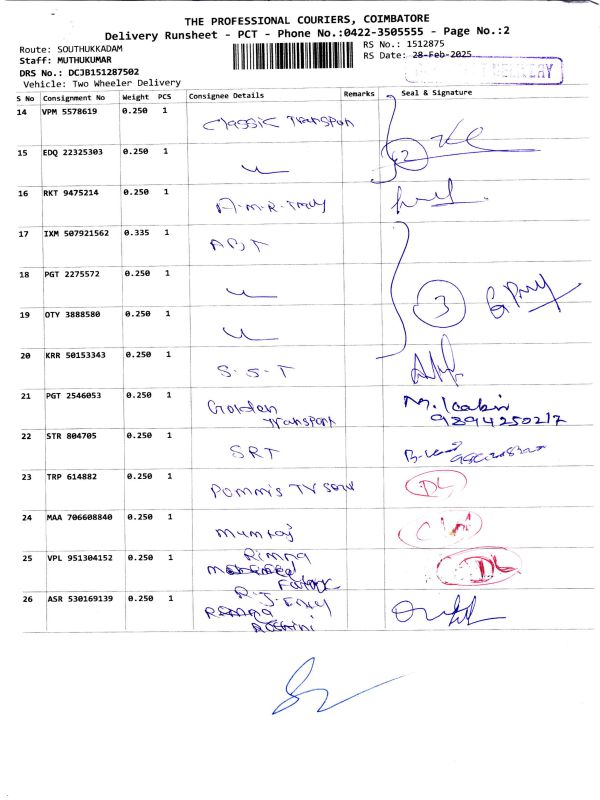 THE PROFESSIONAL COURIERS, COIMBATORE
Delivery Runsheet - PCT - Phone No.:0422-3505555 - Page No.:2
Route: SOUTHUKKADAM
RS No.: 1512875
Staff: MUTHUKUMAR
RS Date: 28-Feb-2025
DRS No.: DCJB151287502
DELIVERY
Vehicle: Two Wheeler Delivery
S No Consignment No Weight PCS Consignee Details Remarks Seal & Signature
14 VPM 5578619 0.250 1 Classic Transport
15 EDQ 22325303 0.250 1 2
16 RKT 9475214 0.250 1 A.M.R.
17 IXM 507921562 0.335 1 ABT
18 PGT 2275572 0.250 1
19 OTY 3888580 0.250 1 3
20 KRR 50153343 0.250 1 S.S.T
21 PGT 2546053 0.250 1 Golden Transport M. Kabir 9894250217
22 STR 804705 0.250 1 SRT
23 TRP 614882 0.250 1 Pommi's TV DL
24 MAA 706608840 0.250 1 Mumtaj
25 VPL 951304152 0.250 1 Rimna Footwear DL
26 ASR 530169139 0.250 1 R.J.